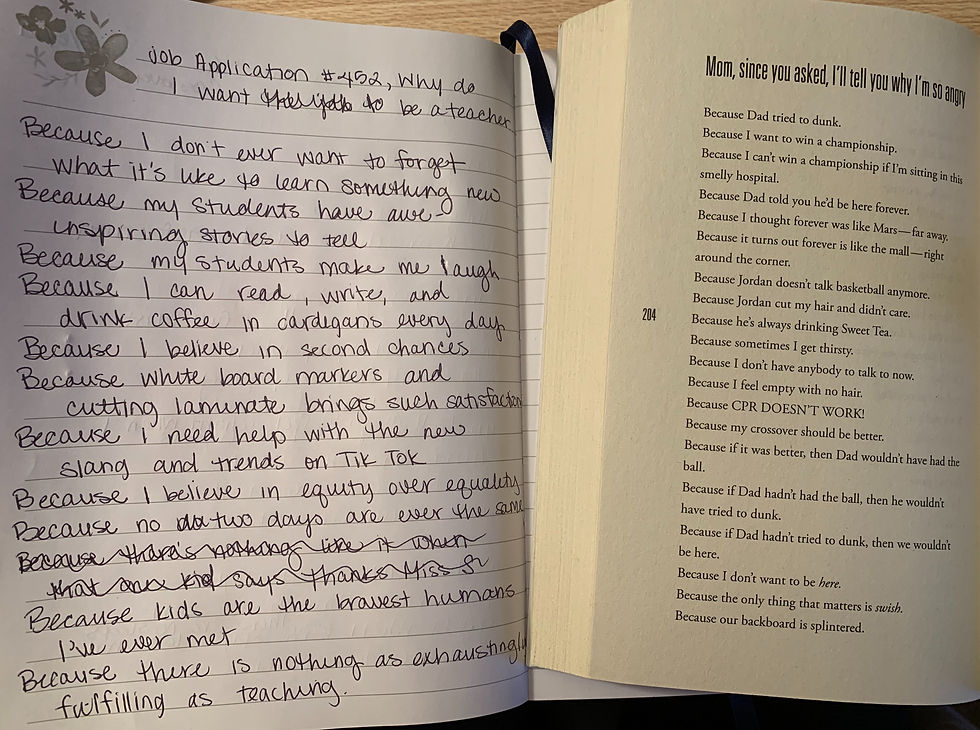 Job Application #452, Why do
I want to be a teacher
Because I don't ever want to forget
what it's like to learn something new
Because my students have awe-
inspiring stories to tell
Because my students make me laugh
Because I can read, write, and
drink coffee in cardigans every day
Because I believe in second chances
Because white board markers and
cutting laminate brings such satisfaction
Because I need help with the new
slang and trends on Tik Tok
Because I believe in equity over equality
Because no two days are ever the same
Because there's nothing like it when
that one kid says thanks Miss
Because kids are the bravest humans
I've ever met
Because there is nothing as exhaustingly
fulfilling as teaching.
Mom, since you asked, I'll tell you why I'm so angry
Because Dad tried to dunk.
Because I want to win a championship.
Because I can't win a championship if I'm sitting in this
smelly hospital.
Because Dad told you he'd be here forever.
Because I thought forever was like Mars—far away.
Because it turns out forever is like the mall—right
around the corner.
Because Jordan doesn't talk basketball anymore.
Because Jordan cut my hair and didn't care.
Because he's always drinking Sweet Tea.
Because sometimes I get thirsty.
Because I don't have anybody to talk to now.
Because I feel empty with no hair.
Because CPR DOESN'T WORK!
Because my crossover should be better.
Because if it was better, then Dad wouldn't have had the
ball.
Because if Dad hadn't had the ball, then he wouldn't
have tried to dunk.
Because if Dad hadn't tried to dunk, then we wouldn't
be here.
Because I don't want to be here.
Because the only thing that matters is swish.
Because our backboard is splintered.
204